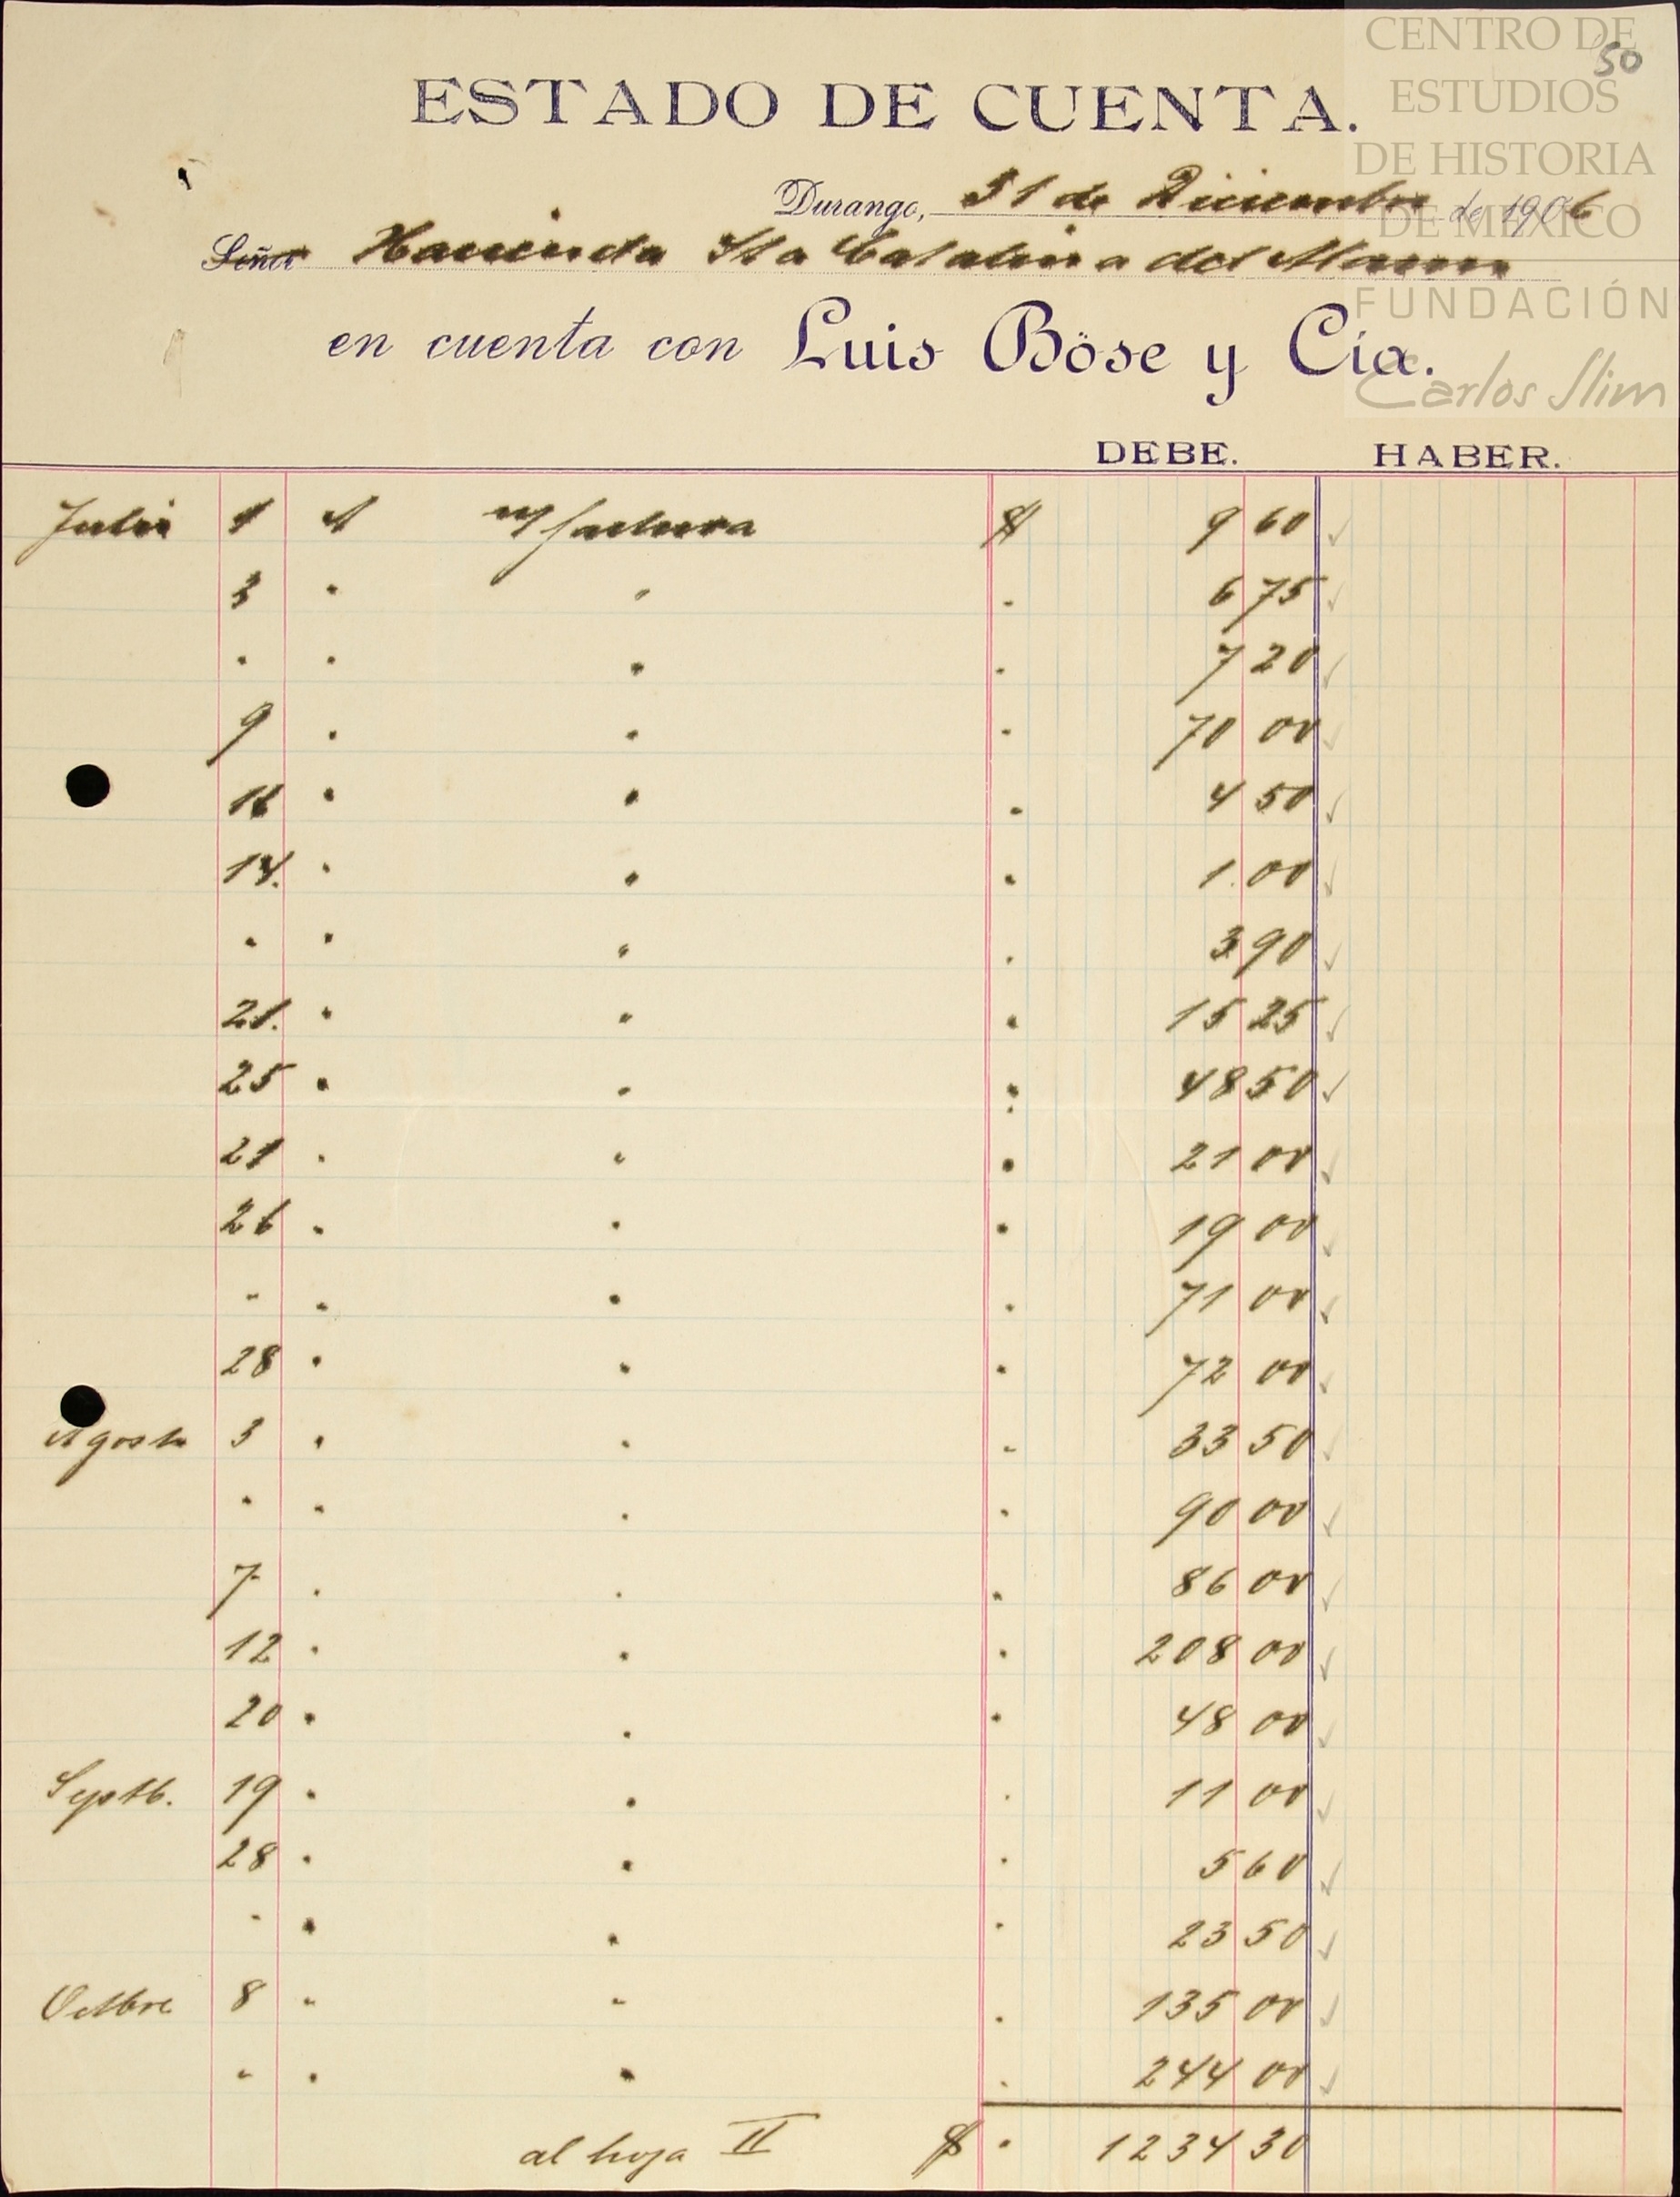 CENTRO DE
ESTUDIOS
DE HISTORIA
DE MÉXICO
FUNDACIÓN
Carlos Slim
50
ESTADO DE CUENTA.
Durango, 31 de Diciembre de 1906
Señor Hacienda Sta Catalina del
en cuenta con Luis Böse y Cía.
DEBE. HABER.
Julio 1 A n/ factura $ 9 60 ✓
3 " " " 6 75 ✓
" " " " 7 20 ✓
9 " " " 70 00 ✓
" " " 4 50 ✓
14. " " " 1.00 ✓
" " " " 3 90 ✓
21. " " " 15 25 ✓
25 " " " 48 50 ✓
21 " " " 21 00 ✓
26 " " " 19 00 ✓
" " " " 71 00 ✓
28 " " " 72 00 ✓
Agosto 3 " " " 33 50 ✓
" " " " 90 00 ✓
7 " " " 86 00 ✓
12 " " " 208 00 ✓
20 " " " 48 00 ✓
Septb. 19 " " " 11 00 ✓
28 " " " 5 60 ✓
" " " " 23 50 ✓
Octbre 8 " " " 135 00 ✓
" " " " 244 00 ✓
al hoja II $ " 1234 30